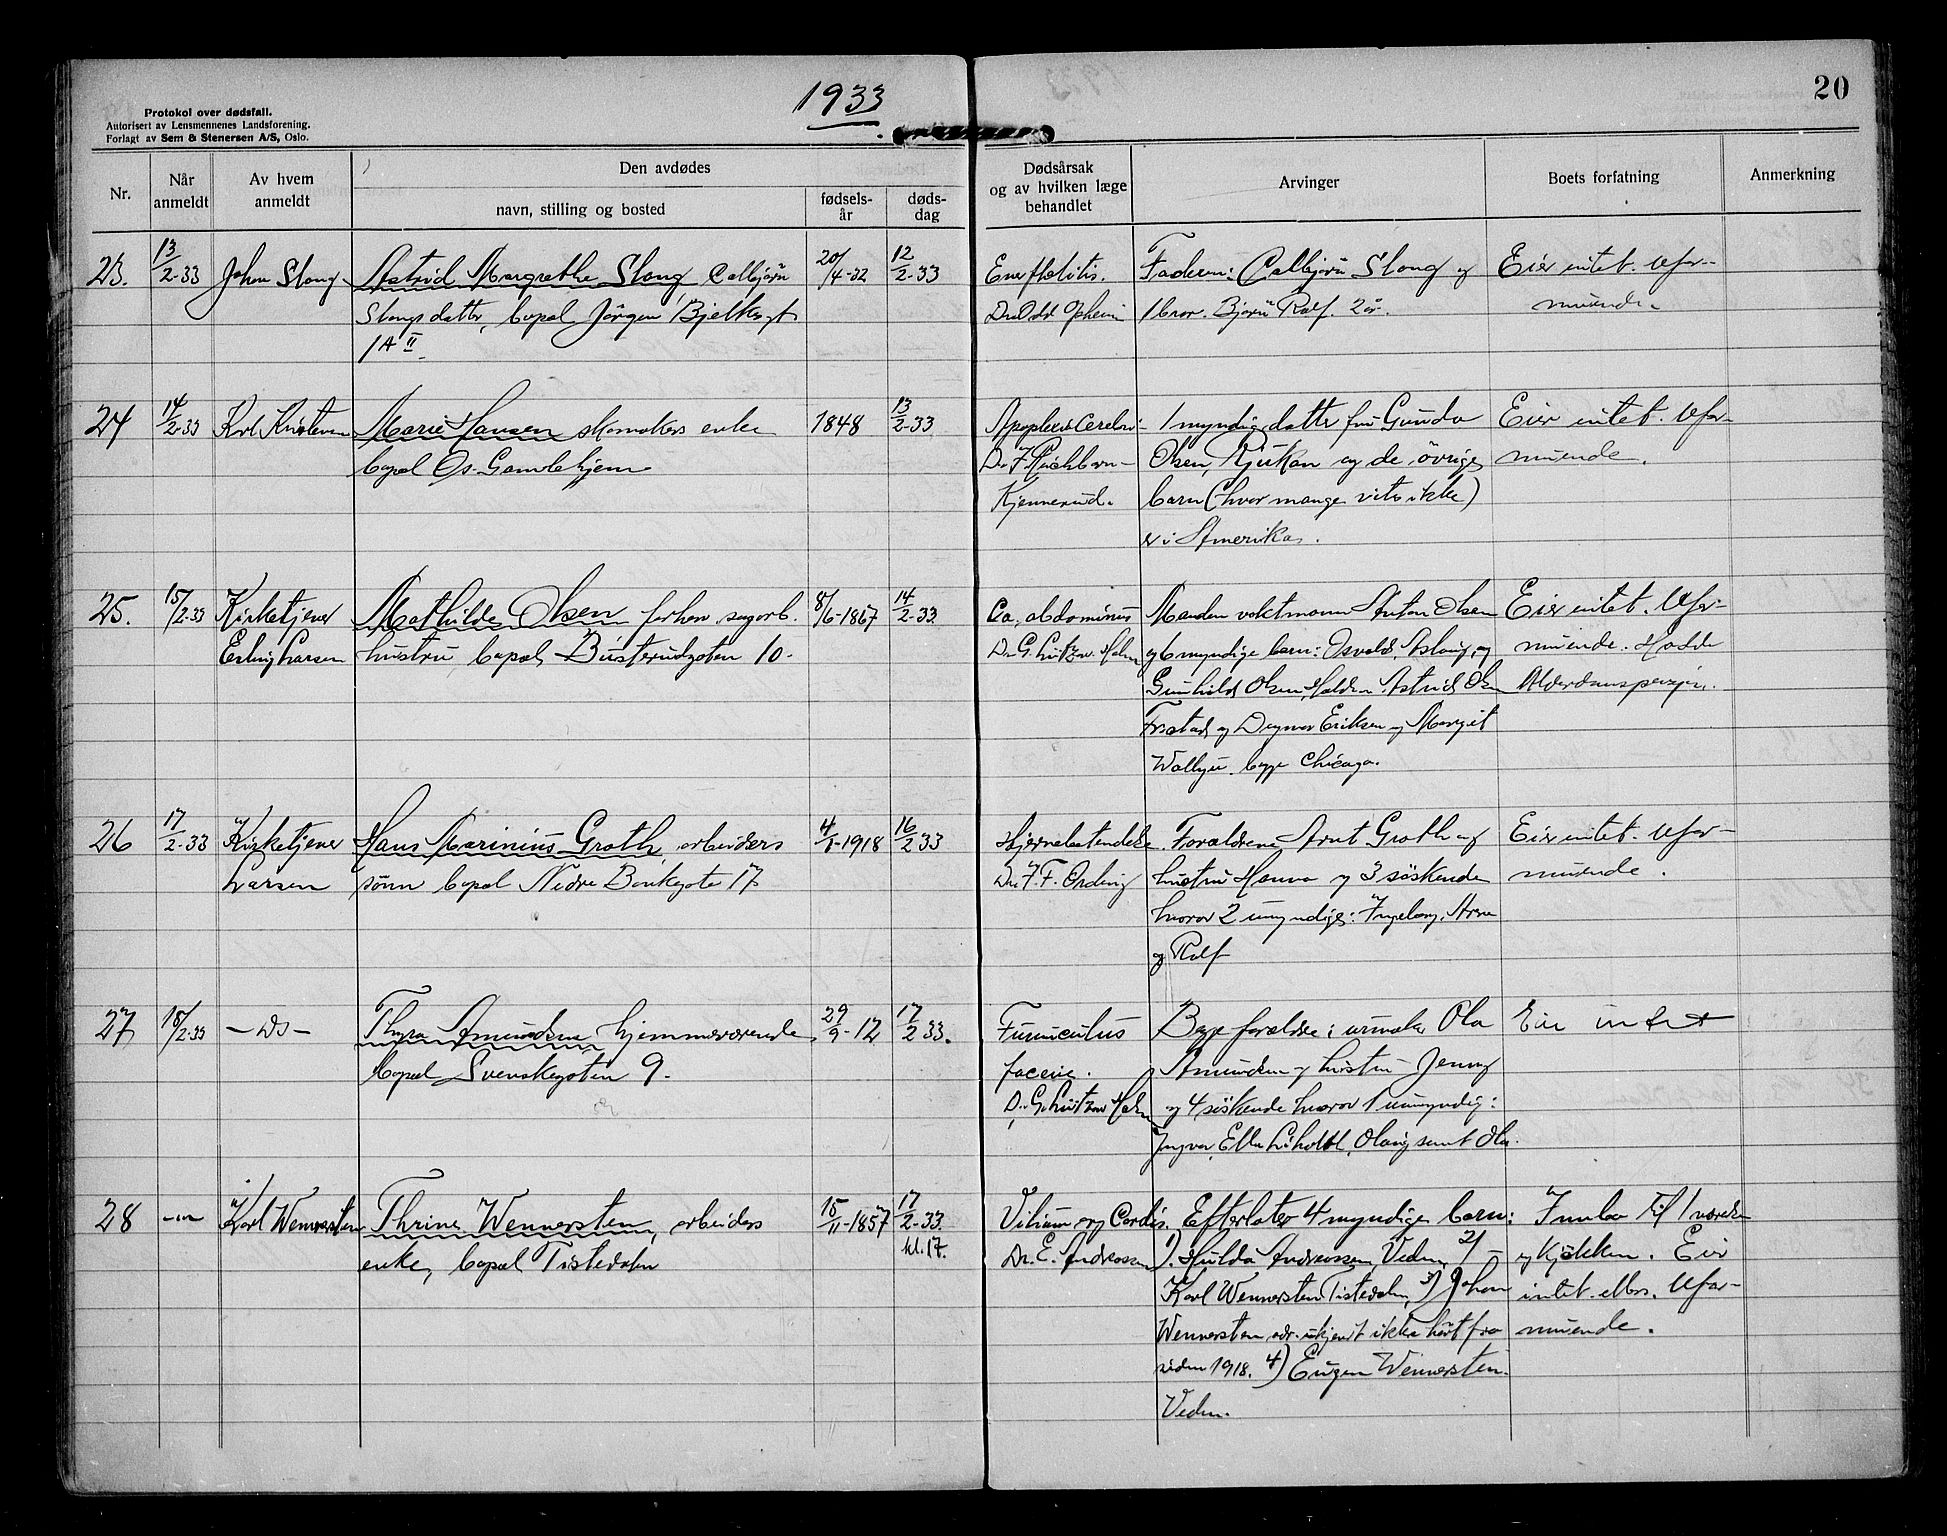 1933
20
Protokol over dødsfall.
Autorisert av Lensmennenes Landsforening.
Forlagt av Sem & Stenersen A/S, Oslo.
Nr.
Når anmeldt
Av hvem anmeldt
Den avdødes
navn, stilling og bosted
fødselsår
dødsdag
Dødsårsak og av hvilken læge behandlet
Arvinger
Boets forfatning
Anmerkning
23. 13/2-33 Johan Stang Astrid Margrethe Stang 20/4-32 12/2-33 Faderen: Stang og Eier intet. Ufor-
Stangs datter, bopæl Jörgen Bjelkesgt 1 bror. Björn Rolf. 2 år. muende.
1A II
24 14/2-33 Karl Kristensen Marie Hansen skomakers enke 1848 13/2-33 1 myndig datter fru Gunda Eier intet. Ufor-
bopæl Os Gamlehjem Olsen, Rjukan og de övrige muende.
Kjennerud. barn (hvor mange vites ikke)
er i Amerika.
25. 15/2-33 Kirketjener Mathilde Olsen forhen sagarb. 8/6-1867 14/2-33 Ca. abdominus Manden vaktmann Anton Olsen Eier intet. Ufor-
Erling Larsen hustru, bopæl Busterudgaten 10. Dr. G. Lützow Holm og 6 myndige barn: Osvald, Aslaug, og muende. Hadde
Gunhild Olsen, Halden. Astrid Olsen Alderdomspensjon.
og Dagmar Eriksen og Margit
begge Chicago.
26 17/2-33 Kirketjener Hans Marinius Groth, arbeiders 4/1-1918 16/2 33 Hjernebetendelse. Forældrene Arnt Groth og Eier intet. Ufor-
Larsen sönn bopæl Nedre Bankegate 17 Dr. F. F. Ording hustru Hanna og 3 söskende muende.
hvorav 2 umyndige: Ingeborg, Arne
og Rolf
27 18/2-33 -Ds- Thyra Amundsen, hjemmeværende 29/9-12 17/2 33. Furunculus Begge forældre: urmaker Ola Eier intet
bopæl Svenskegaten 9. faciei. Amundsen og hustru Jenny
Dr. G. Lützow Holm og 4 söskende hvorav 1 umyndig:
Ingvar, Ella Olaug samt Ola.
28 -"- Karl Wennersten Thrine Wennersten, arbeiders 15/11-1857 17/2-33. Vitium org Cordis. Efterlater 4 myndige barn: Innbo til 1 værelse
enke, bopæl Tistedalen kl. 17. Dr. E. Andreassen 1). Hulda Andreassen, Veden, 2) og Kjökken. Eier
Karl Wennersten Tistedalen, 3) Johan intet ellers. Ufor-
Wennersten adr. ukjendt ikke hört fra muende.
siden 1918. 4) Eugen Wennersten
Veden.